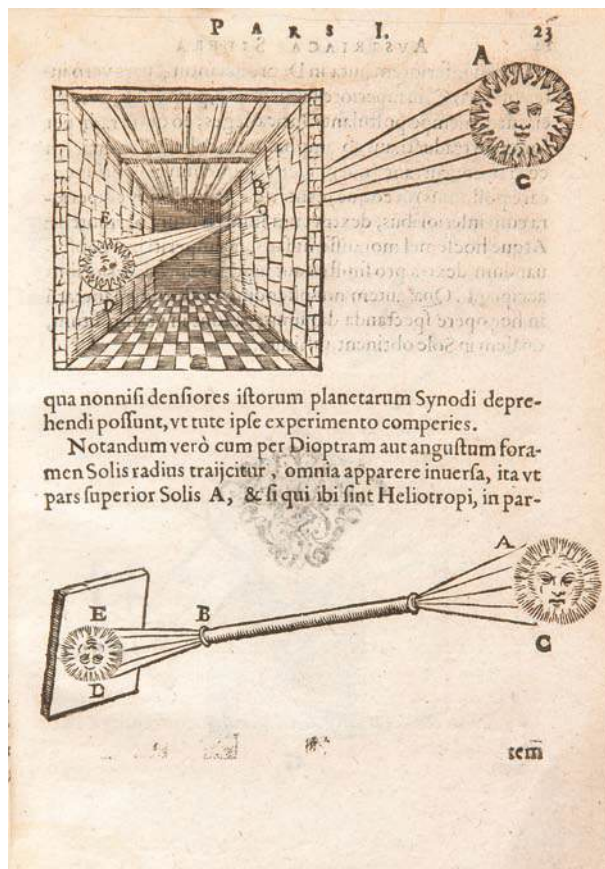 PARS I. 23
A
C
B
E
D
qua nonnisi densiores istorum planetarum Synodi depre-
hendi possunt, vt tute ipse experimento comperies.
Notandum verò cum per Dioptram aut angustum fora-
men Solis radius traijcitur, omnia apparere inuersa, ita vt
pars superior Solis A, & si qui ibi sint Heliotropi, in par-
A
E
B
C
D
tem